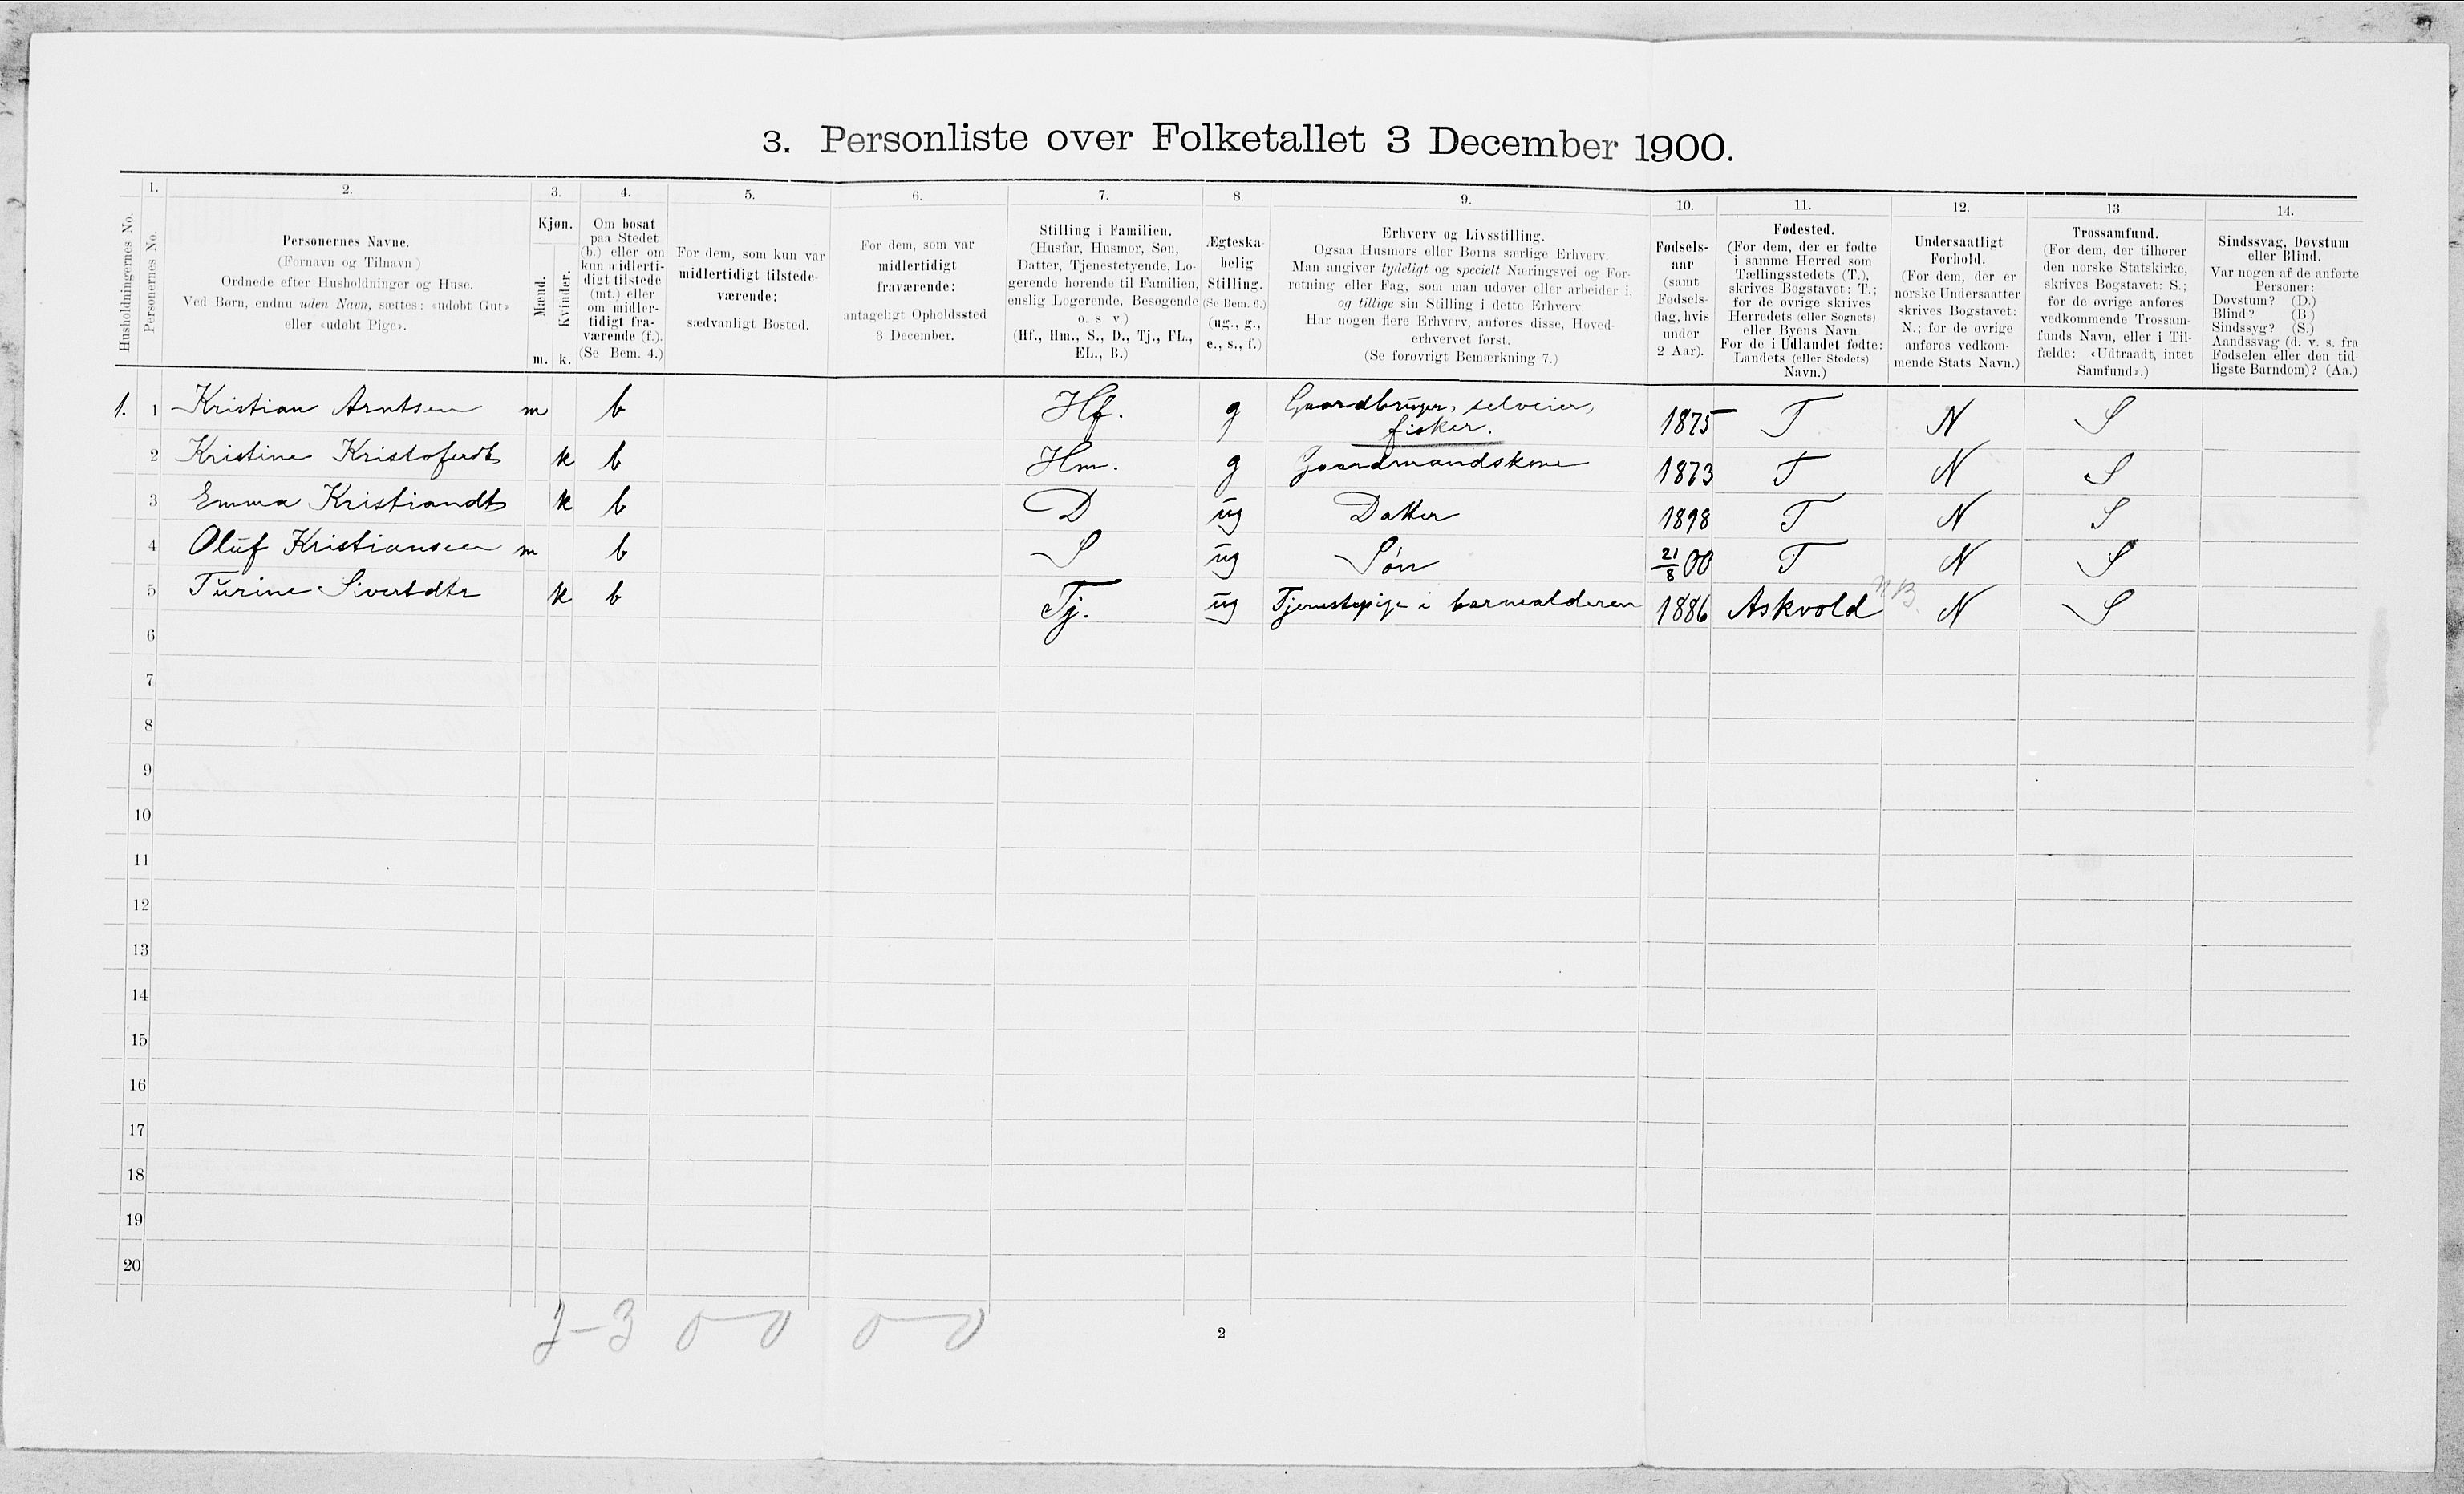 3. Personliste over Folketallet 3 December 1900.
Husholdningernes No.
1.
Personernes No.
2.
Personernes Navne.
(Fornavn og Tilnavn)
Ordnede efter Husholdninger og Huse.
Ved Børn, endnu uden Navn, sættes: «udøbt Gut»
eller «udøbt Pige».
3.
Kjøn.
Mænd.
Kvinder.
m. k.
4.
Om bosat
paa Stedet
(b.) eller om
kun midlerti-
digt tilstede
(mt.) eller
om midler-
tidigt fra-
værende (f.).
(Se Bem. 4.)
5.
For dem, som kun var
midlertidigt tilstede-
værende:
sædvanligt Bosted.
6.
For dem, som var
midlertidigt
fraværende:
antageligt Opholdssted
3 December.
7.
Stilling i Familien.
(Husfar, Husmor, Søn,
Datter, Tjenestetyende, Lo-
gerende hørende til Familien,
enslig Logerende, Besøgende
o. s v.)
(Hf., Hm., S., D., Tj., FL.,
EL., B.)
8.
Ægteska-
belig
Stilling.
(Se Bem. 6.)
(ug., g.,
e., s., f.)
9.
Erhverv og Livsstilling.
Ogsaa Husmors eller Børns særlige Erhverv.
Man angiver tydeligt og specielt Næringsvei og For-
retning eller Fag, som man udøver eller arbeider i,
og tillige sin Stilling i dette Erhverv.
Har nogen flere Erhverv, anføres disse, Hoved-
erhvervet først.
(Se forøvrigt Bemærkning 7.)
10.
Fødsels-
aar
(samt
Fødsels-
dag, hvis
under
2 Aar).
11.
Fødested.
(For dem, der er fødte
i samme Herred som
Tællingsstedets (T.),
skrives Bogstavet: T.;
for de øvrige skrives
Herredets (eller Sognets)
eller Byens Navn.
For de i Udlandet fødte:
Landets (eller Stedets)
Navn.)
12.
Undersaatligt
Forhold.
(For dem, der er
norske Undersaatter
skrives Bogstavet:
N.; for de øvrige
anføres vedkom-
mende Stats Navn.)
13.
Trossamfund.
(For dem, der tilhører
den norske Statskirke,
skrives Bogstavet: S.;
for de øvrige anføres
vedkommende Trossam-
funds Navn, eller i Til-
fælde: «Udtraadt, intet
Samfund».)
14.
Sindssvag, Døvstum
eller Blind.
Var nogen af de anførte
Personer:
Døvstum? (D.)
Blind? (B.)
Sindssyg? (S.)
Aandssvag (d. v. s. fra
Fødselen eller den tid-
ligste Barndom)? (Aa.)
1. 1 Kristian Arntsen m b Hf. g Gaardbruger, selveier, fisker. 1875 T N S
2 Kristine Kristoferdt k b Hm. g Gaardmandskone 1873 T N S
3 Emma Kristiandt k b D ug Datter 1898 T N S
4 Oluf Kristiansen m b S ug Søn 21/8 00 T N S
5 Turine Sivertdtr k b Tj. ug Tjenestepige i barnealderen 1886 Askvold NB. N S
6
7
8
9
10
11
12
13
14
15
16
17
18
19
20
2-3 0-0 0-0
2